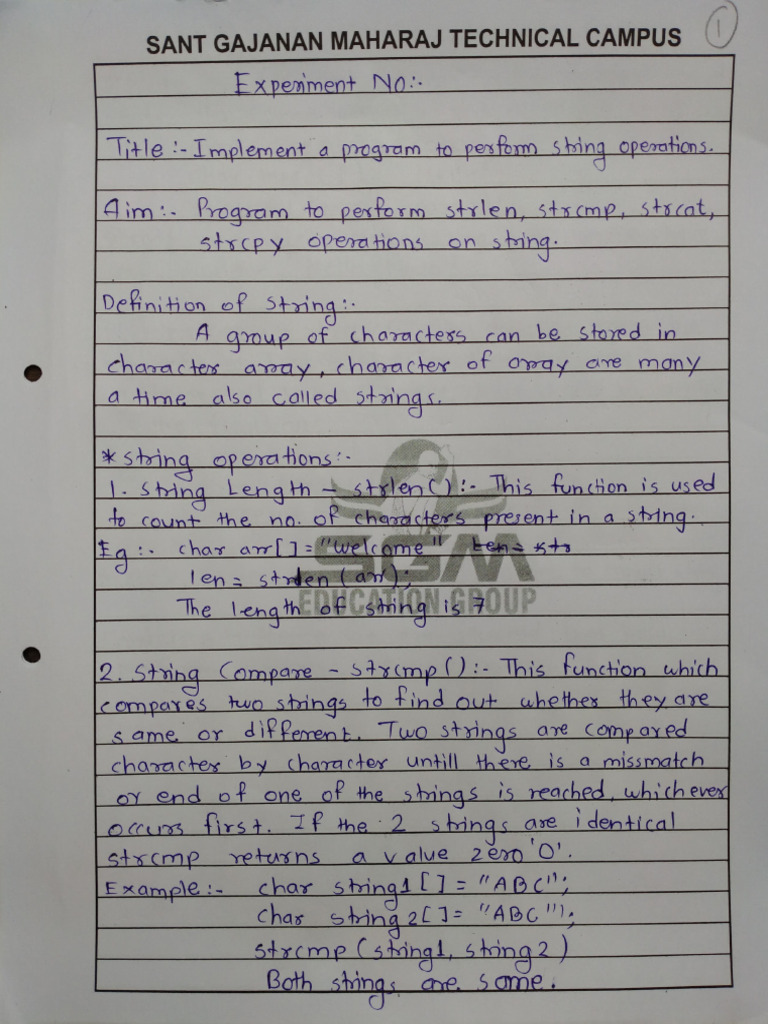 SANT GAJANAN MAHARAJ TECHNICAL CAMPUS
1
Experiment No:-
Title :- Implement a program to perform string operations.
Aim:- Program to perform strlen, strcmp, strcat,
strcpy operations on string.
Definition of string:-
A group of characters can be stored in
character array, character of array are many
a time also called strings.
* string operations:-
1. String Length - strlen() :- This function is used
to count the no. of characters present in a string.
Eg :- char arr[] = "Welcome" len = str
len = strlen (arr);
The length of string is 7
SGM
EDUCATION GROUP
2. String Compare - strcmp () :- This function which
compares two strings to find out whether they are
same or different. Two strings are compared
character by character untill there is a missmatch
or end of one of the strings is reached, whichever
occurs first. If the 2 strings are identical
strcmp returns a value zero '0'.
Example :- char string1 [] = "ABC";
char string2[] = "ABC");
strcmp (string1, string2)
Both strings are same.